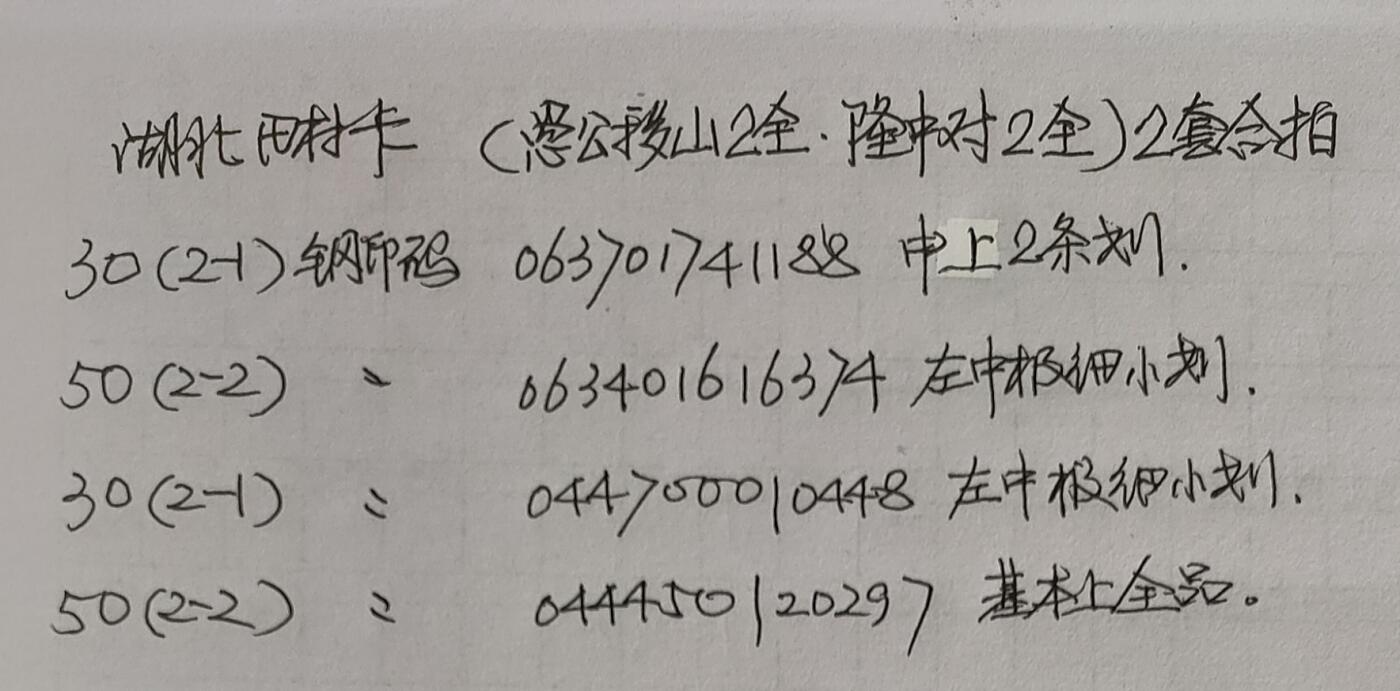 湖北田村卡 (愚公移山2全·隆中对2全)2套合拍
30(2-1)钢印码 063701741188 中上2条划.
50(2-2) 〃 063401616374 左中极细小划.
30(2-1) 〃 044700010448 左中极细小划.
50(2-2) 〃 044450120297 基本上全品。